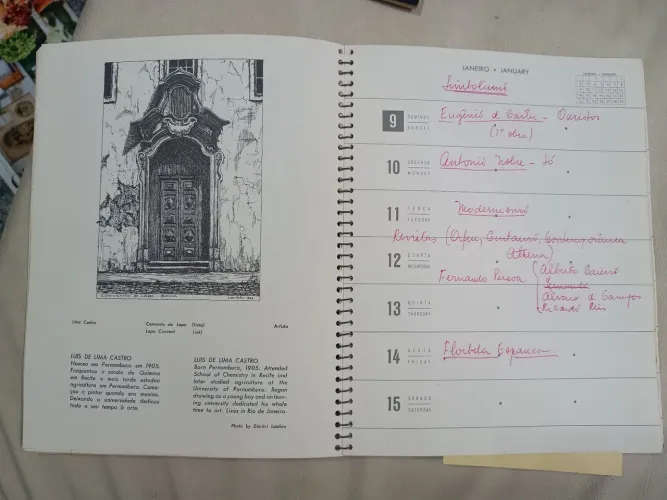 CONVENTO DA LAPA - BAHIA
Lima Castro
Convento da Lapa (tinta)
Lapa Convent (ink)
Artista
LUIS DE LIMA CASTRO
Nasceu em Pernambuco em 1905.
Frequentou a escola de Química
em Recife e mais tarde estudou
agricultura em Pernambuco. Come-
çou a pintar quando era menino.
Deixando a universidade dedicou
todo o seu tempo à arte.
LUIS DE LIMA CASTRO
Born Pernambuco, 1905. Attended
School of Chemistry in Recife and
later studied agriculture at the
University of Pernambuco. Began
drawing as a young boy and on leav-
ing university dedicated his whole
time to art. Lives in Rio de Janeiro.
Photo by Dimitri
JANEIRO • JANUARY
Simbolismo
9 DOMINGO SUNDAY
Eugénio de Castro - Oaristos
(1ª obra)
10 SEGUNDA MONDAY
Antonio Nobre - Só
11 TERÇA TUESDAY
Modernismo
Revistas (Orfeu, Centauro, Contemporânea
Athena)
12 QUARTA WEDNESDAY
Fernando Pessoa (Alberto Caeiro
Alvaro de Campos
Ricardo Reis
13 QUINTA THURSDAY
14 SEXTA FRIDAY
Florbela Espanca
15 SÁBADO SATURDAY